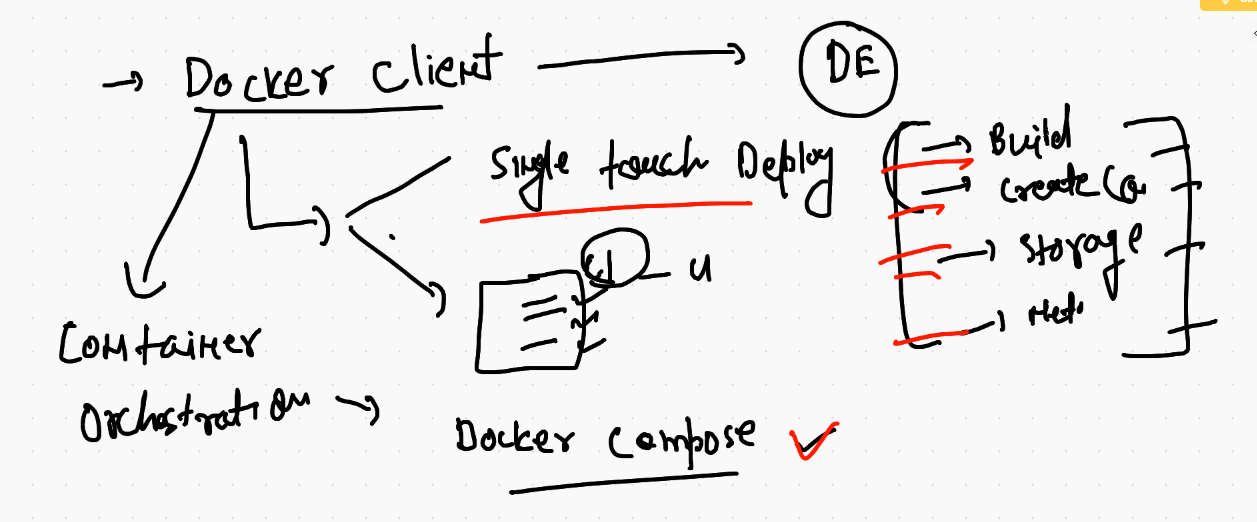 → Docker Client → DE
Single touch Deploy
→ Build
→ Create Co
→ Storage
→ Net
u
Container
Orchestration →
Docker Compose ✓